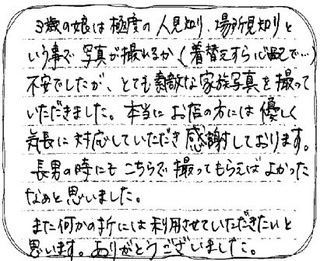 3歳の娘は極度の人見知り、場所見知りと
いう事で写真が撮れるか(着替えすら心配で…)
不安でしたが、とても素敵な家族写真を撮って
いただきました。本当にお店の方には優しく
気長に対応していただき感謝しております。
長男の時にもこちらで撮ってもらえばよかった
なぁと思いました。
また何かの折には利用させていただきたいと
思います。ありがとうございました。